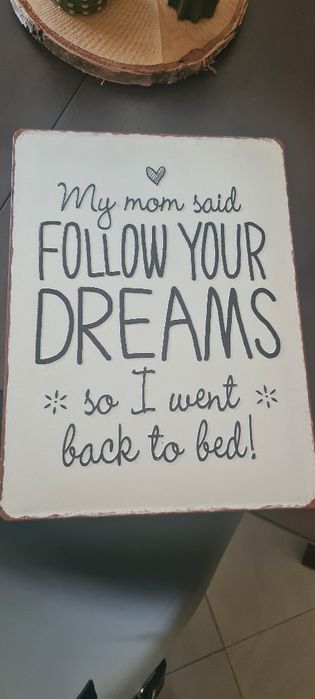 My mom said
FOLLOW YOUR
DREAMS
so I went
back to bed!